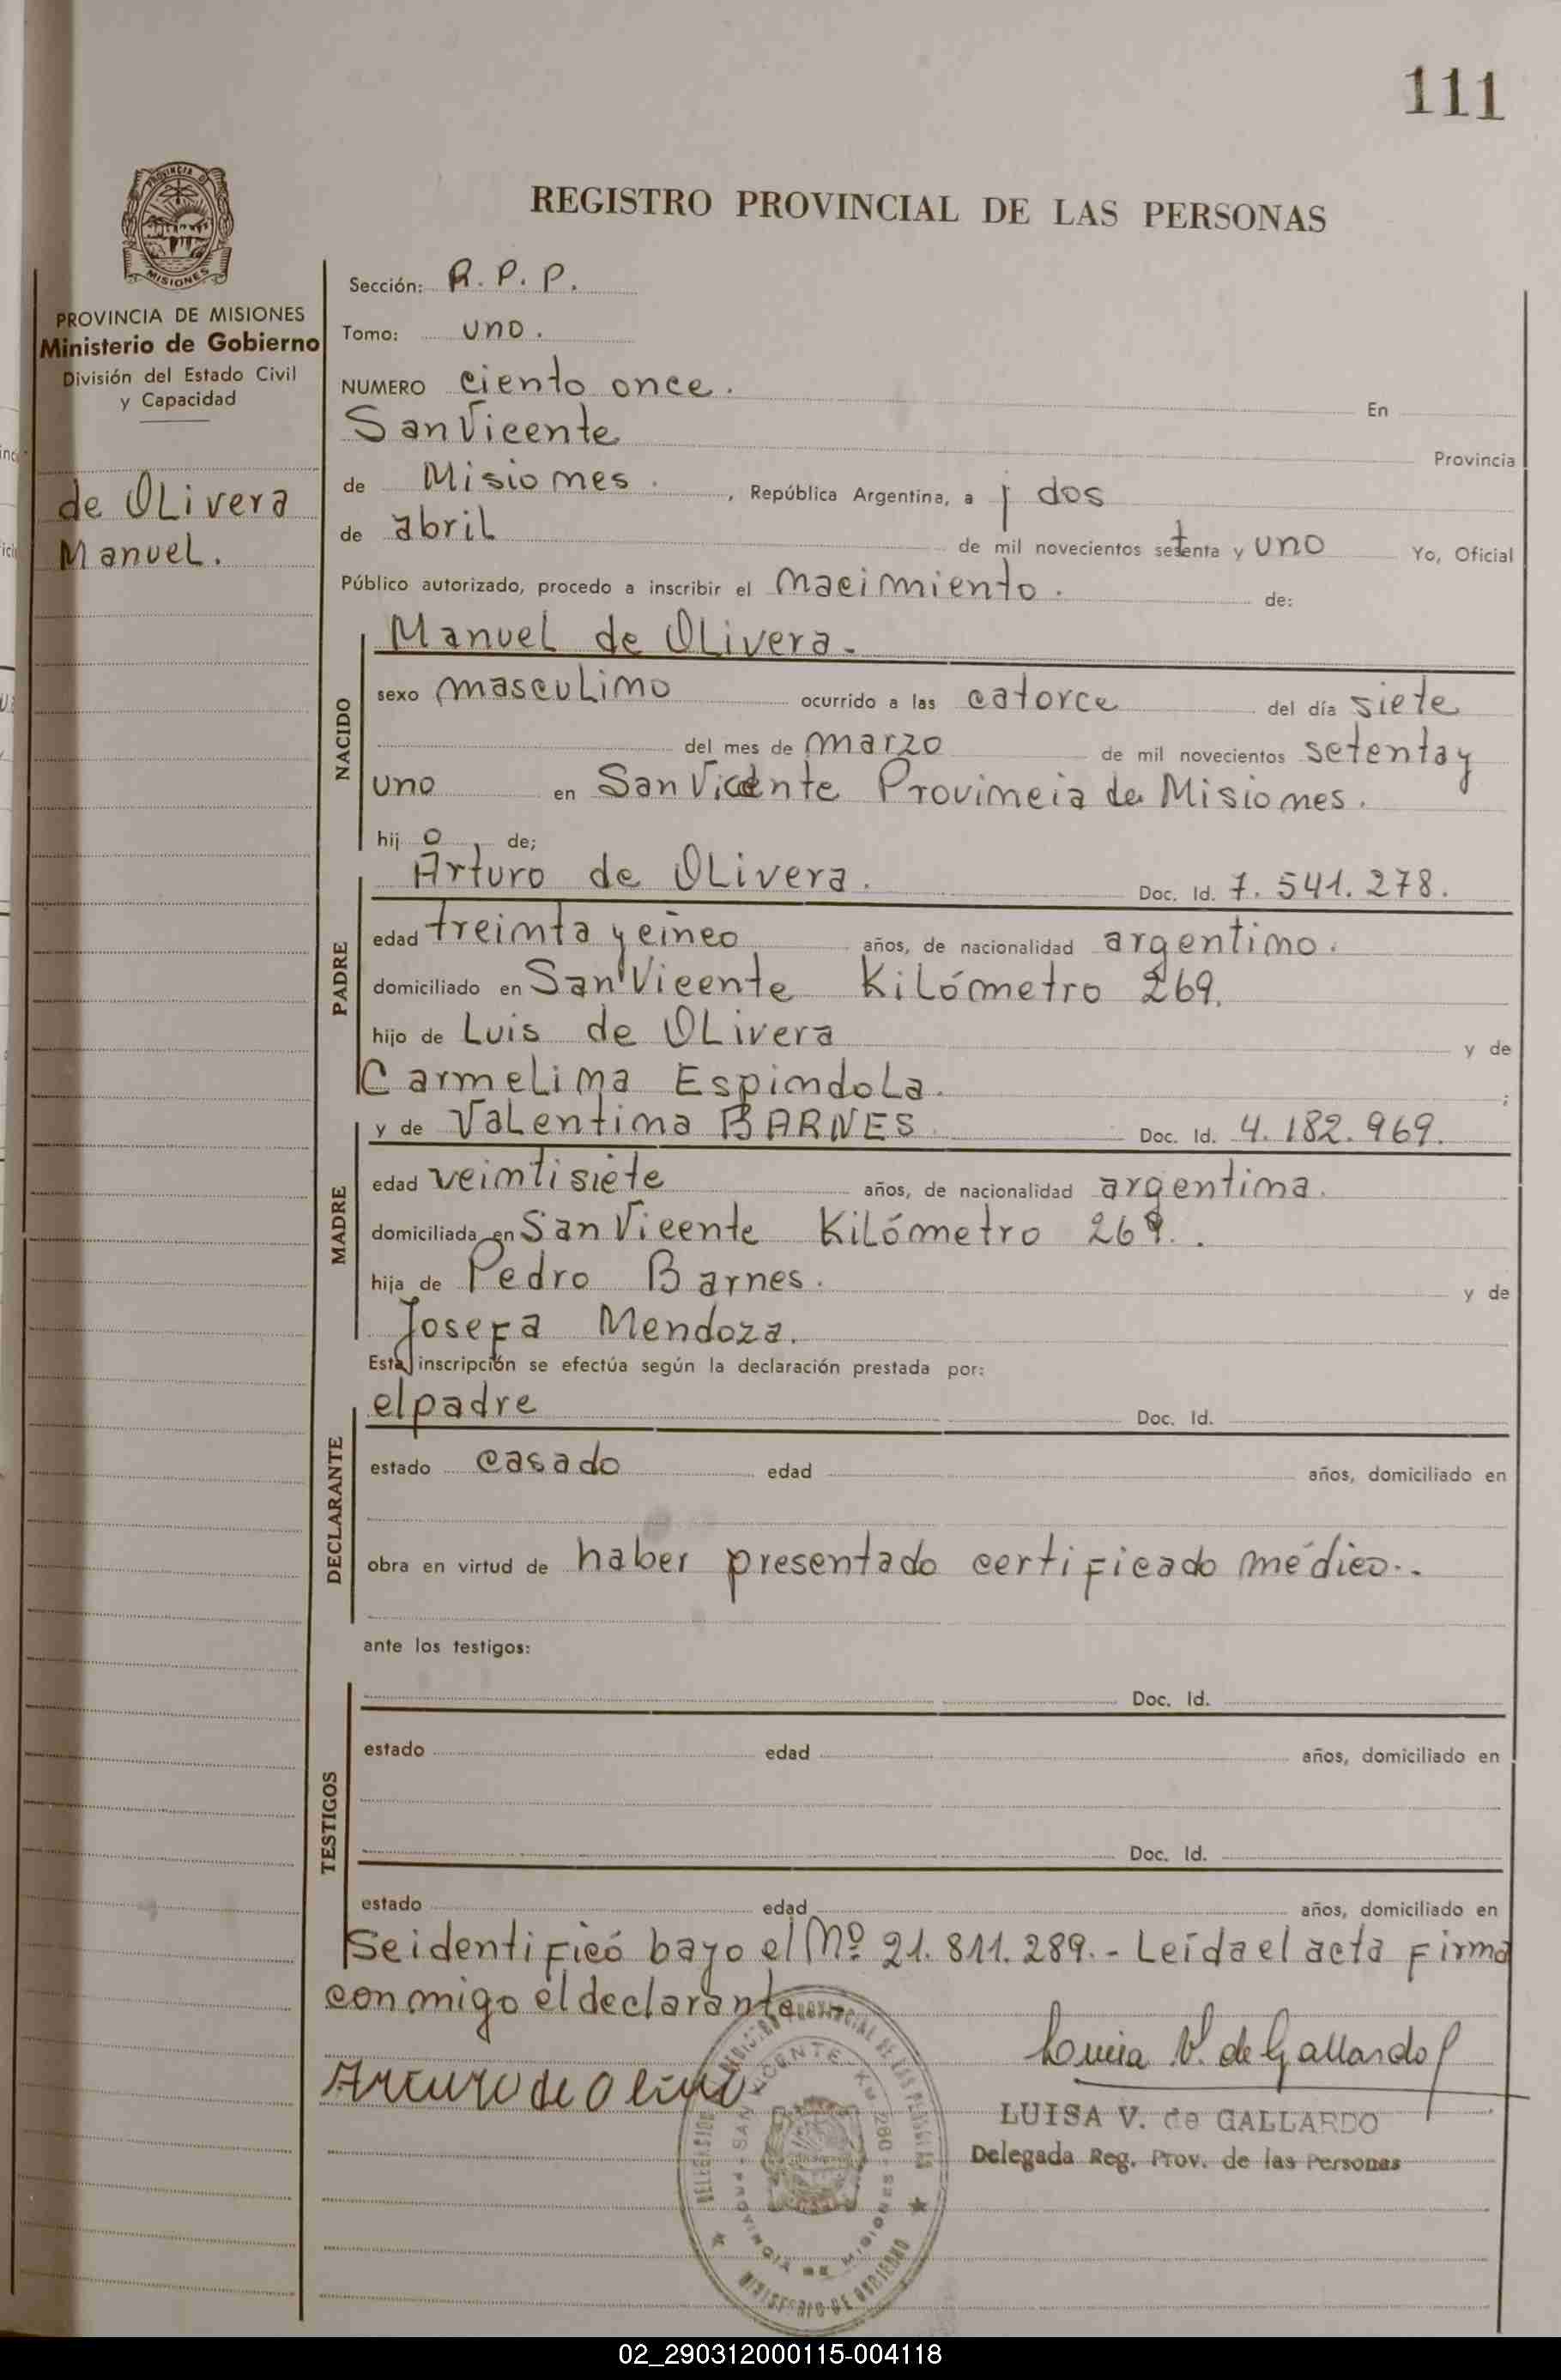 111
REGISTRO PROVINCIAL DE LAS PERSONAS
PROVINCIA DE MISIONES
Ministerio de Gobierno
División del Estado Civil
y Capacidad
de Olivera
Manuel.
Sección: R. P. P.
Tomo: uno.
NUMERO ciento once. En
San Vicente Provincia
de Misiones. , República Argentina, a dos
de abril de mil novecientos setenta y uno Yo, Oficial
Público autorizado, procedo a inscribir el nacimiento. de:
NACIDO
Manuel de Olivera.
sexo masculino ocurrido a las catorce del día siete
del mes de marzo de mil novecientos setenta y
uno en San Vicente Provincia de Misiones.
hij o de;
PADRE
Arturo de Olivera. Doc. Id. 7. 541. 278.
edad treinta y cinco años, de nacionalidad argentino.
domiciliado en San Vicente Kilómetro 269.
hijo de Luis de Olivera y de
Carmelina Espindola. ;
MADRE
y de Valentina BARNES Doc. Id. 4. 182. 969.
edad veintisiete años, de nacionalidad argentina.
domiciliada en San Vicente Kilómetro 269.
hija de Pedro Barnes. y de
Josefa Mendoza.
Esta inscripción se efectúa según la declaración prestada por:
DECLARANTE
el padre Doc. Id.
estado casado edad años, domiciliado en
obra en virtud de haber presentado certificado médico..
ante los testigos:
TESTIGOS
Doc. Id.
estado edad años, domiciliado en
Doc. Id.
estado edad años, domiciliado en
Se identificó bajo el Nº 21. 811. 289. - Leída el acta firma
conmigo el declarante. -
Arturo de
V. de Gallardo
LUISA V. de GALLARDO
Delegada Reg. Prov. de las Personas
DELEGACION REGISTRO PROVINCIAL DE LAS PERSONAS
SAN VICENTE - Km 260 - MISIONES
PROVINCIA DE
MINISTERIO DE GOBIERNO
02_290312000115-004118